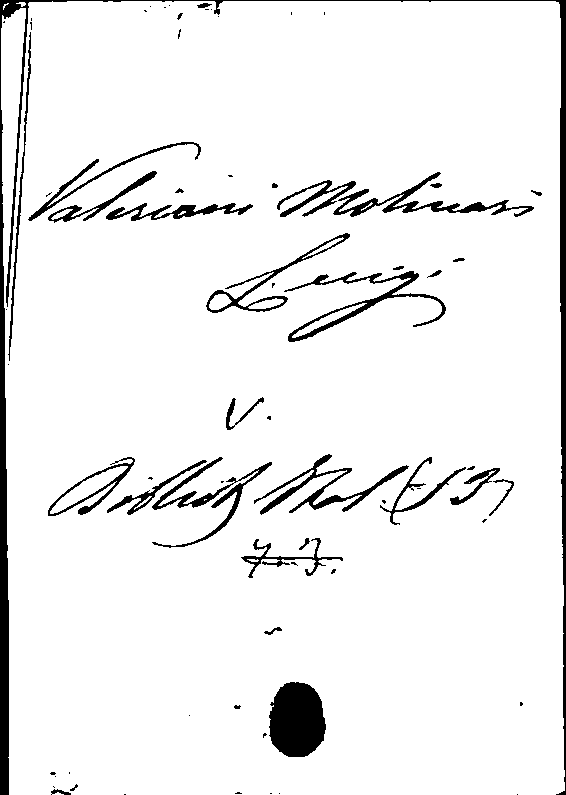 Valeriani Molinari
Luigi
V.
Biblioth Ital. (53)